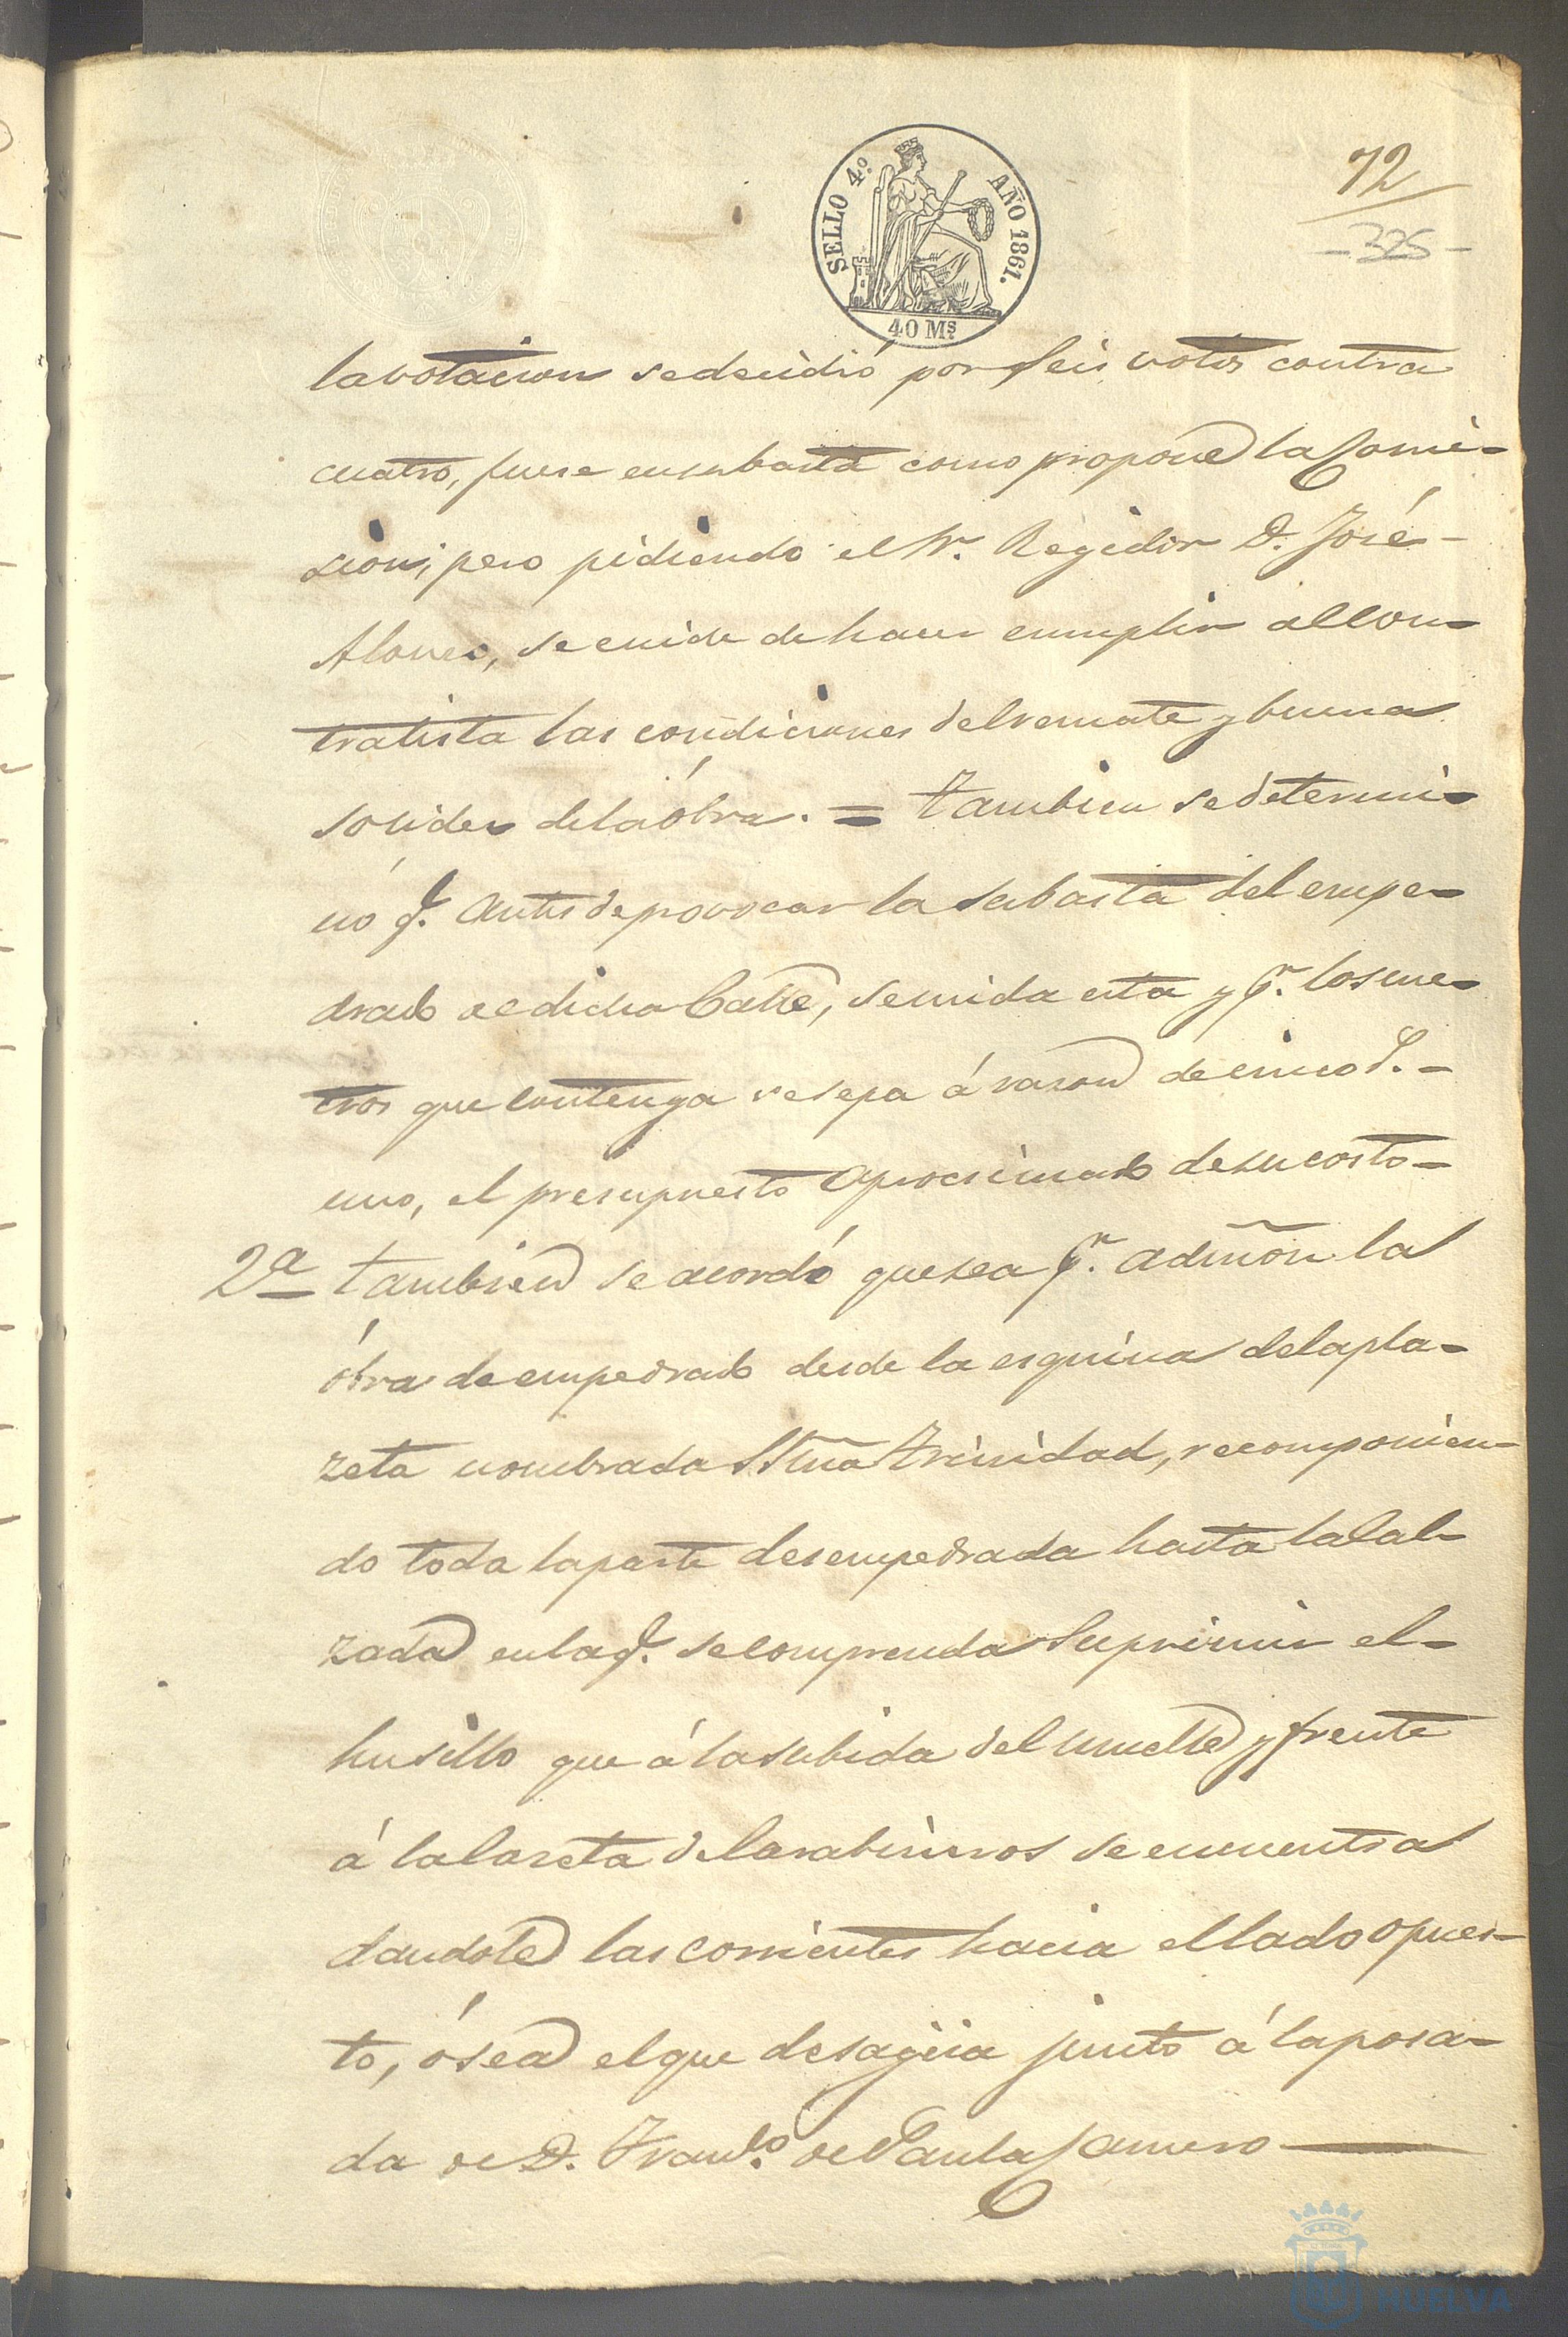 SELLO 4.º AÑO 1861.
40 Ms.
72
- 325 -
la votacion se decidió por seis votos contra
cuatro, fuese en subasta como propone la Comi-
sion; pero pidiendo el Sr. Regidor D. José
Alonso, se cuide de hacer cumplir al Con-
tratista las condiciones del remate y buena
solidez de la óbra. = Tambien se determi-
nó q. antes de provocar la subasta del empe-
drado de dicha Calle, se mida esta y pr. los me-
tros que contenga se sepa á razon de cinco rs. -
uno, el presupuesto aprocsimado de su costo -
2a Tambien se acordó que sea pr. admõn la
óbra de empedrado desde la esquina de la pla-
zeta nombrada SSma Trinidad, recomponien-
do toda la parte desempedrada hasta la Cal-
zada en la q. se comprenda suprimir el -
husillo que á la subida del muelle y frente
á la Caseta de Carabineros se encuentra
dandole las corrientes hacia el lado opues-
to, ó sea el que desagüa junto á la posa-
da de D. Franco. de Paula Camero
HUELVA